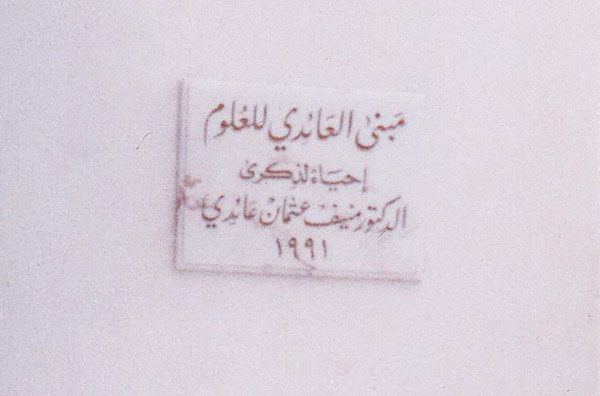 مبنى العائدي للعلوم
إحياءً لذكرى
الدكتور منيف عثمان عائدي
١٩٩١